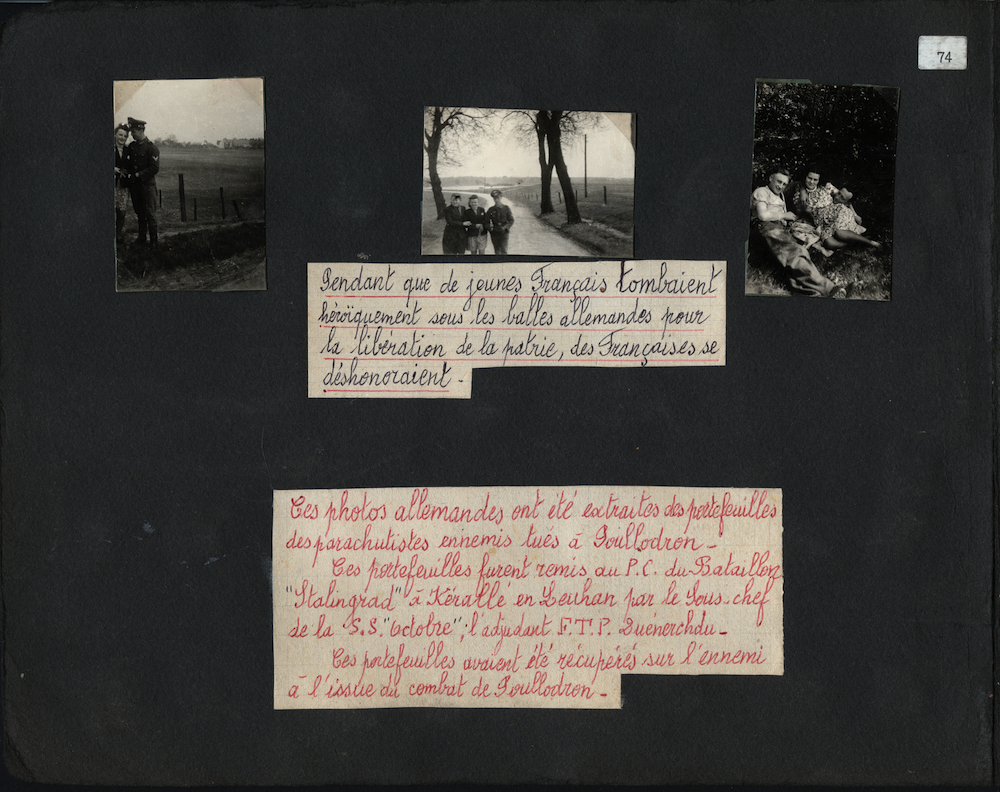 74
Pendant que de jeunes Français tombaient
héroïquement sous les balles allemandes pour
la libération de la patrie, des Françaises se
déshonoraient -
Ces photos allemandes ont été extraites des portefeuilles
des parachutistes ennemis tués à Poullodron -
Ces portefeuilles furent remis au P.C. du Bataillon
"Stalingrad" à Kérallé en Leuhan par le Sous-chef
de la "S.S." Octobre", l'adjudant F.T.P. Quenerchdu -
Ces portefeuilles avaient été récupérés sur l'ennemi
à l'issue du combat de Poullodron -